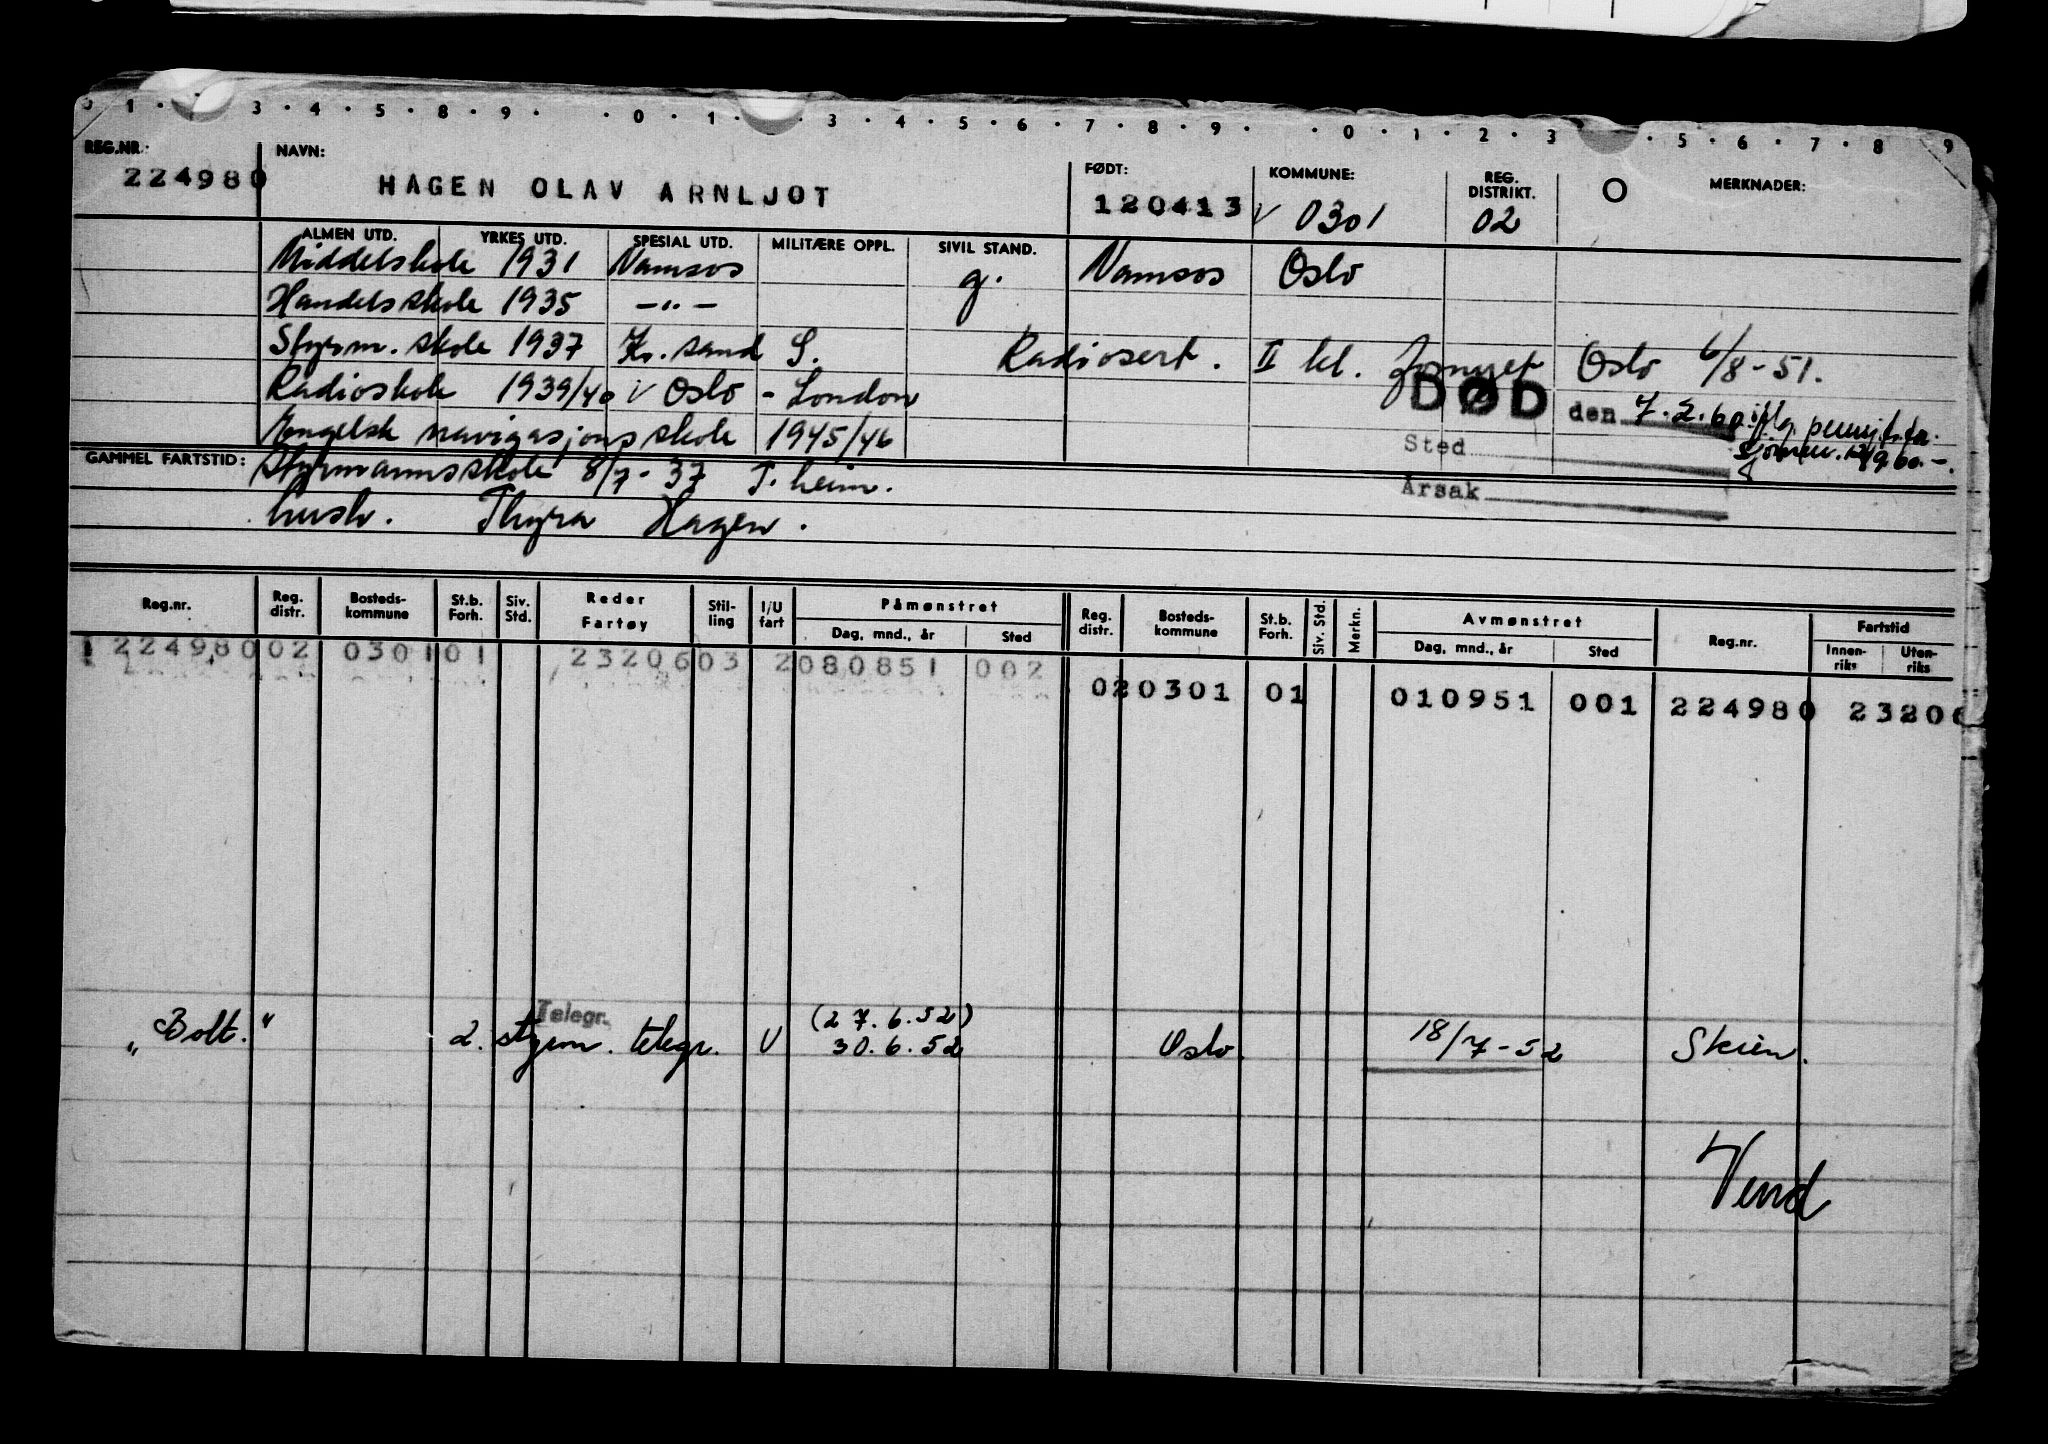 1 · · 3 · 4 · 5 · 8 · 9 · · 0 · 1 · · 3 · 4 · 5 · 6 · 7 · 8 · 9 · · 0 · 1 · 2 · 3 · 5 · 6 · 7 · 8 9
REG.NR.: NAVN: FØDT: KOMMUNE: REG. DISTRIKT. O MERKNADER:
224980 HAGEN OLAV ARNLJOT 120413 V 0301 02
ALMEN UTD. YRKES UTD. SPESIAL UTD. MILITÆRE OPPL. SIVIL STAND.
Middelskole 1931 Namsos g. Namsos Oslo
Handelsskole 1935 —"—
Styrm. skole 1937 Kr. sand S. Radiosert. II kl. fornyet Oslo 6/8-51.
Radioskole 1939/40 i Oslo - London DØD den 7.2.60
Engelsk navigasjonsskole 1945/46 Sted
GAMMEL FARTSTID: Styrmannsskole 8/7-37 T.heim. Årsak
hustr. Thyra Hagen.
Reg.nr. Reg. distr. Bosteds-kommune St.b. Forh. Siv. Std. Reder Fartøy Stil-ling I/U fart Påmønstret Reg. distr. Bosteds-kommune St.b. Forh. Siv. Std. Merkn. Avmønstret Reg.nr. Fartstid
Dag, mnd., år Sted Dag, mnd., år Sted Innen-riks Uten-riks
1 224980 02 0301 01 23206 03 2 080851 002
02 0301 01 010951 001 224980 2320
Telegr. (27.6.52)
"Bolt." 2. styrm. telegr. U 30.6.52 Oslo. 18/7-52 Skien.
Vend